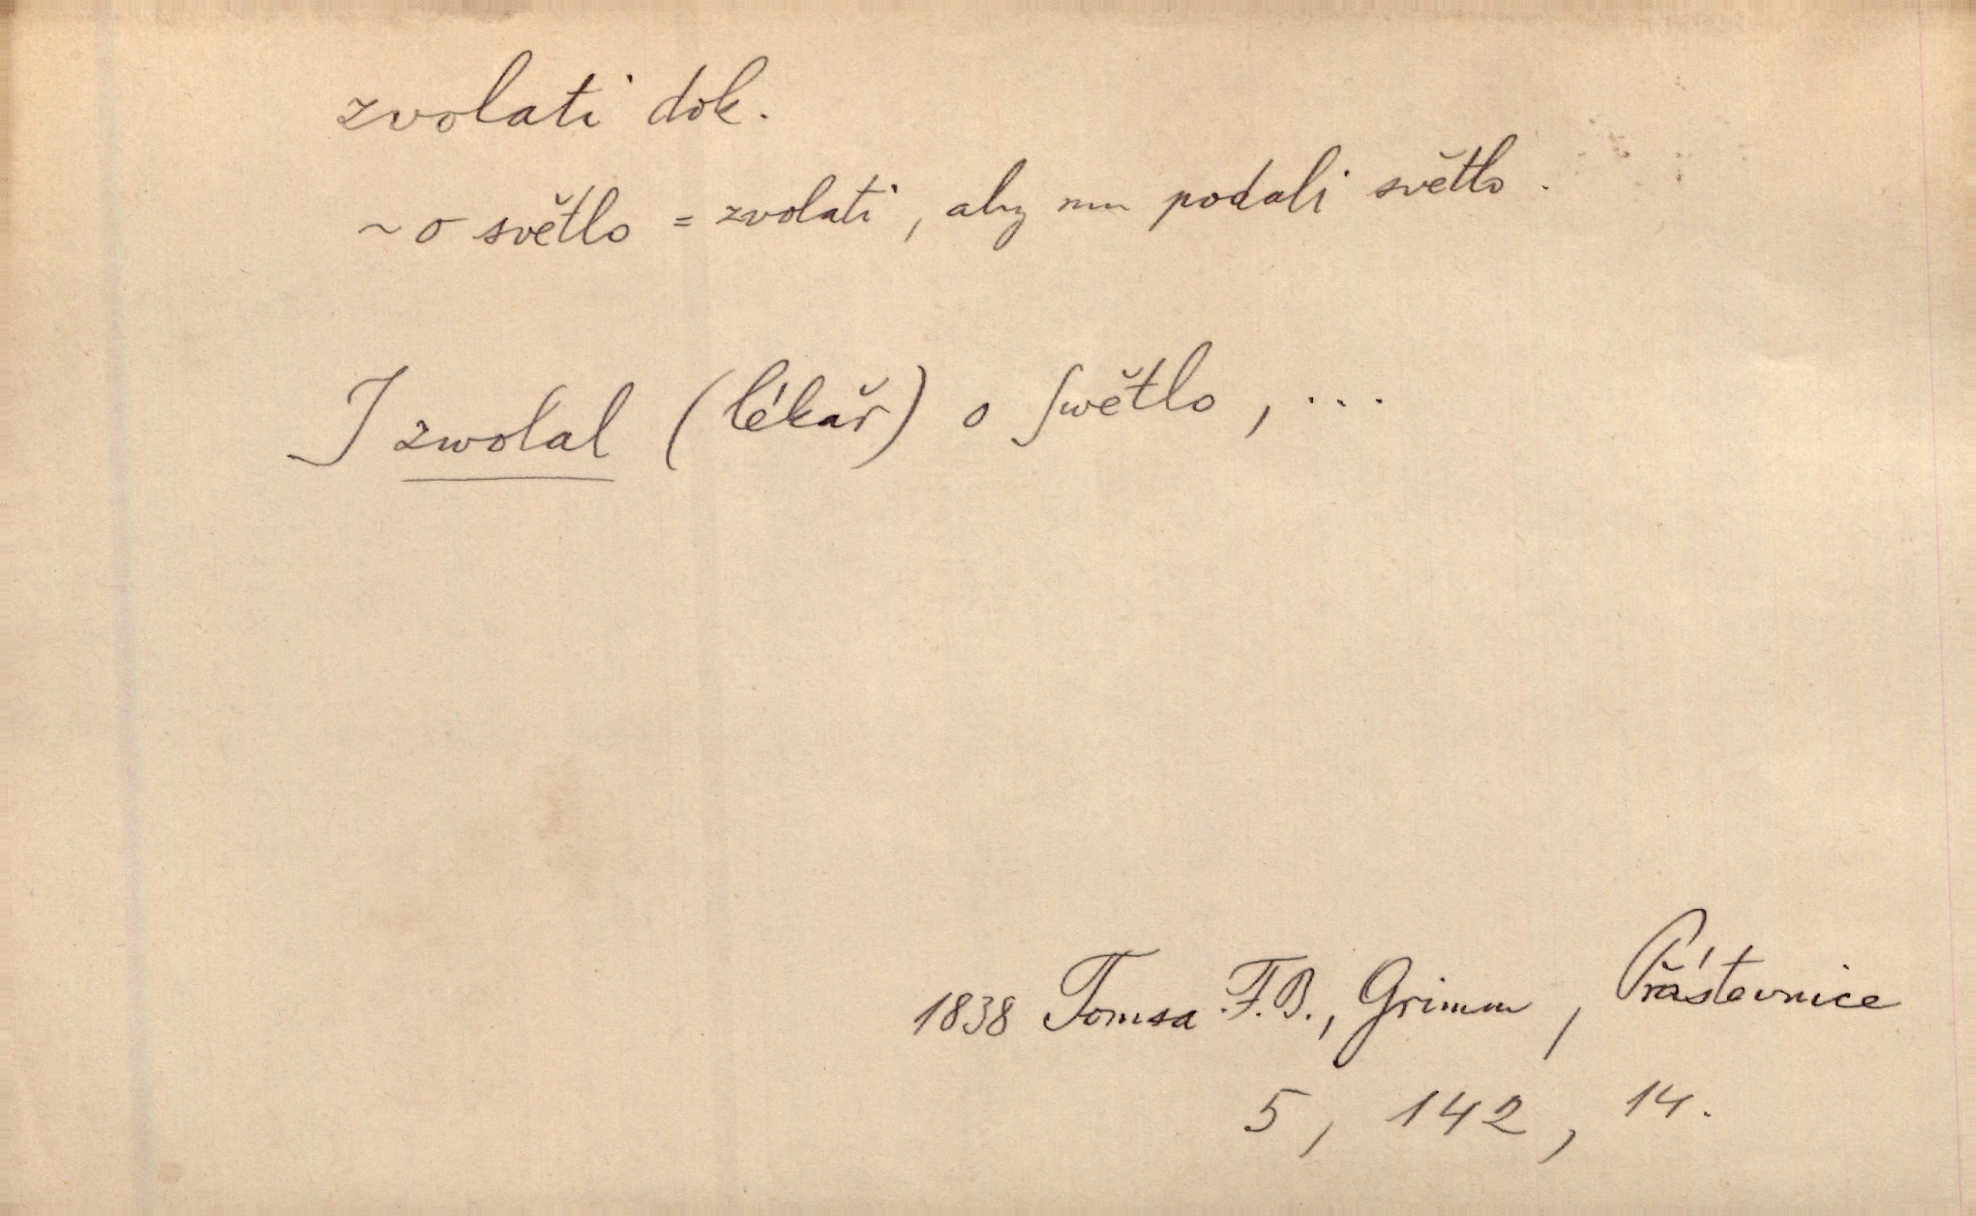 zvolati dok.
~ o světlo = zvolati, aby mu podali světlo.
I zwolal (lékař) o ſwětlo, ...
1838 Tomsa F.B., Grimm, Přástevnice
5, 142, 14.